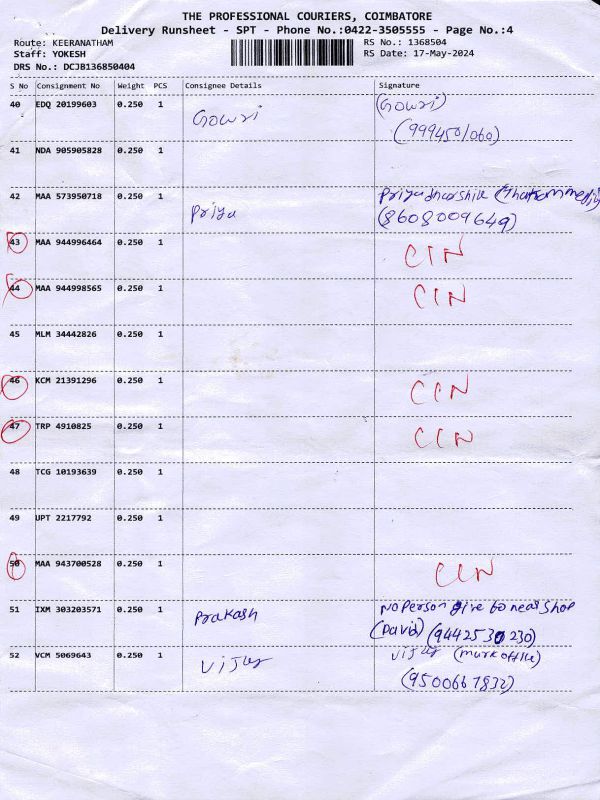 THE PROFESSIONAL COURIERS, COIMBATORE
Delivery Runsheet - SPT - Phone No.:0422-3505555 - Page No.:4
Route: KEERANATHAM RS No.: 1368504
Staff: YOKESH RS Date: 17-May-2024
DRS No.: DCJB136850404
S No Consignment No Weight PCS Consignee Details Signature
40 EDQ 20199603 0.250 1 Gowri (Gowri)
(9994501060)
41 NDA 905905828 0.250 1
42 MAA 573950718 0.250 1 Priya Priyadharshik
(8608009649)
43 MAA 944996464 0.250 1 CIN
44 MAA 944998565 0.250 1 CIN
45 MLM 34442826 0.250 1
46 KCM 21391296 0.250 1 CIN
47 TRP 4910825 0.250 1 CIN
48 TCG 10193639 0.250 1
49 UPT 2217792 0.250 1
50 MAA 943700528 0.250 1 CIN
51 IXM 303203571 0.250 1 Prakash No Person give to near shop
(David) (9442530230)
52 VCM 5069643 0.250 1 Vijay Vijay (mark office)
(9500667832)